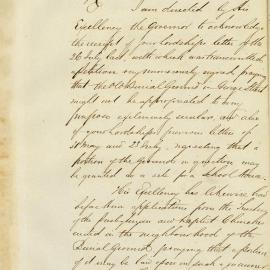 I am directed by His
Excellency the Governor to acknowledge
the receipt of your Lordships letter of the
26 July last, with which was transmitted
a petition very numerously signed praying
that the Old Burial Ground in George Street
might not be appropriated to any
purposes exclusively secular, and also
of your Lordships previous letters of
May and 23 July, requesting that a
portion of the Ground in question may
be granted as a site for a School House.
His Excellency has likewise had
before him applications from the
of the Presbyterian and Baptist Churches
in the neighbourhood of the
Burial Ground, praying that a portion
of it may be laid upon in such a manner